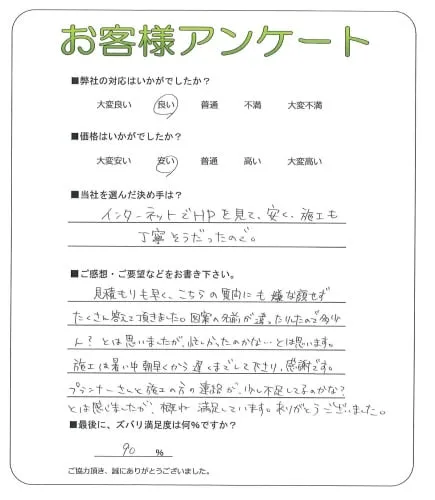 お客様アンケート
■弊社の対応はいかがでしたか?
大変良い 良い 普通 不満 大変不満
■価格はいかがでしたか?
大変安い 安い 普通 高い 大変高い
■当社を選んだ決め手は?
インターネットでHPを見て、安く、施工も
丁寧そうだったので。
■ご感想・ご要望などをお書き下さい。
見積もりも早く、こちらの質問にも嫌な顔せず
たくさん答えて頂きました。図案の名前が違ったりしたので多少
ん?とは思いましたが、忙しかったのかな…とは思います。
施工は暑い中朝早くから遅くまでして下さり、感謝です。
プランナーさんと施工の方の連絡が、少し不足してるのかな?
とは感じましたが、概ね満足しています。ありがとうございました。
■最後に、ズバリ満足度は何%ですか?
90 %
ご協力頂き、誠にありがとうございました。